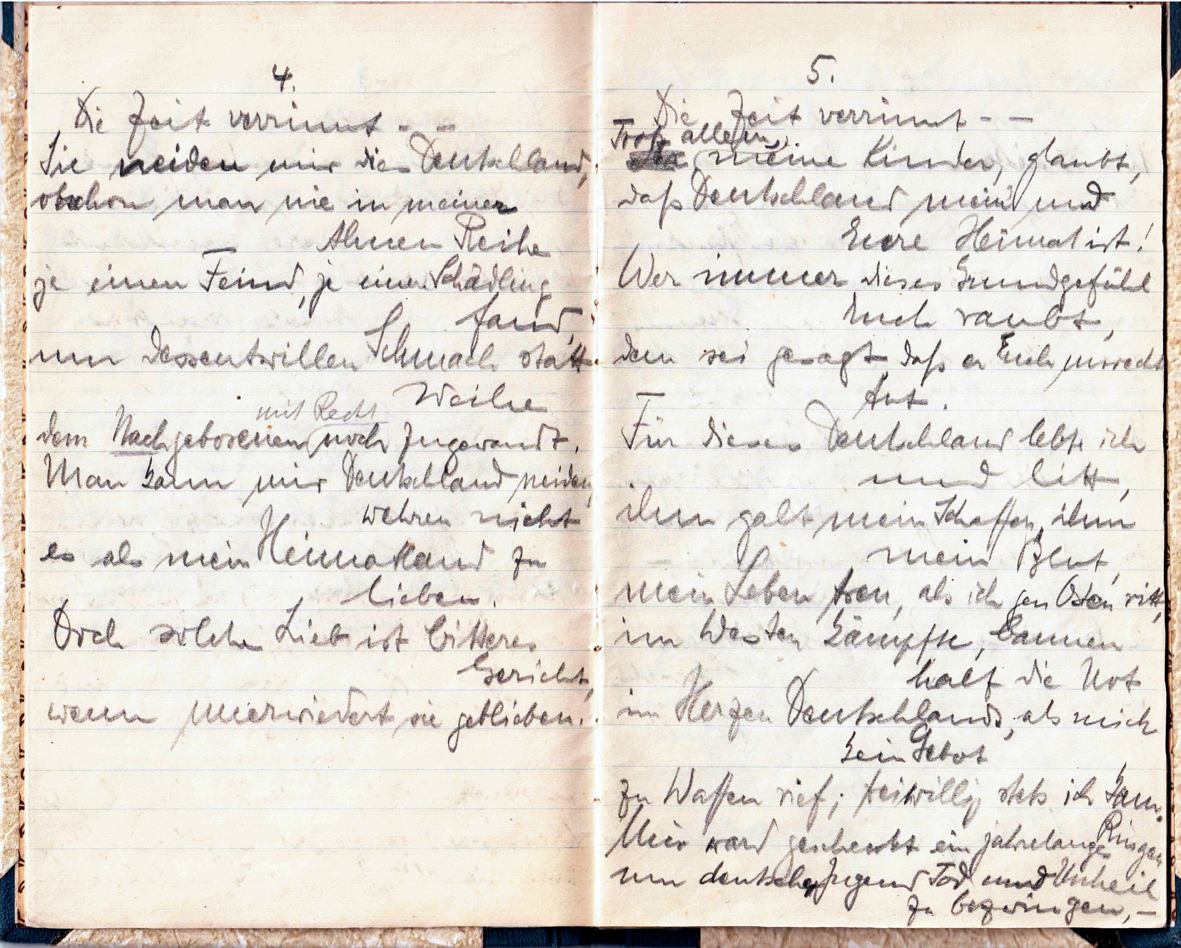 4.
Die Zeit verrinnt - -
Sie neiden mir dies Deutschland,
obschon man nie in meiner
Ahnen Reihe
je einen Feind, je einen Schädling
fand,
um dessentwillen Schmach statt
Weihe
mit Recht
dem Nachgeborenen noch zugewandt.
Man kann mir Deutschland neiden,
wehren nicht
es als mein Heimatland zu
lieben.
Doch solche Lieb ist bitteres
Gericht,
wenn unerwiedert sie geblieben.
5.
Die Zeit verrinnt - -
Trotz allem,
meine Kinder, glaubt,
daß Deutschland mein und
Eure Heimat ist!
Wer immer dieses Grundgefühl
Euch raubt,
dem sei gesagt daß er Euch unrecht
tut.
Für dieses Deutschland lebte ich
und litt,
ihm galt mein Schaffen, ihm
mein Blut,
mein Leben treu, als ich gen Osten ritt,
im Westen kämpfte, bannen
half die Not
im Herzen Deutschlands, als mich
kein Gebot
zu Waffen rief; freiwillig stets ich kam.
Mir ward geschenkt ein jahrelanges Ringen
um deutscher Jugend Tod und Unheil
zu bezwingen, –